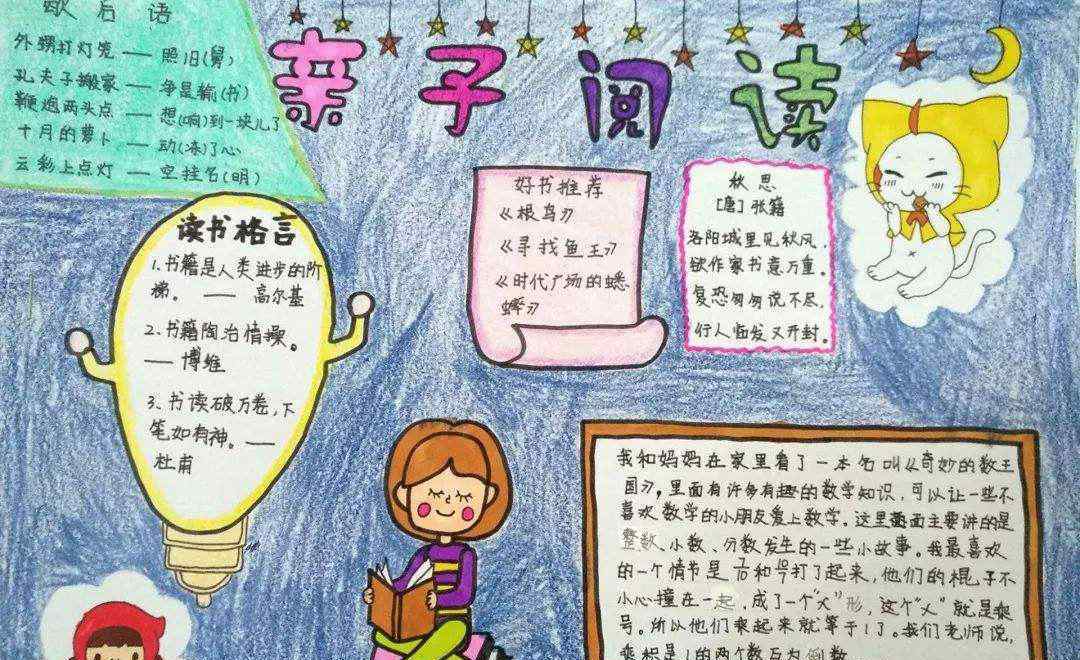 歇后语
外甥打灯笼 —— 照旧(舅)
孔夫子搬家 —— 争是输(书)
鞭炮两头点 —— 想(响)到一块儿了
十月的萝卜 —— 动(冻)了心
云彩上点灯 —— 空挂名(明)
亲子阅读
读书格言
1.书籍是人类进步的阶
梯。 —— 高尔基
2.书籍陶冶情操。
—— 博维
3.书读破万卷,下
笔如有神。——
杜甫
好书推荐
《根鸟》
《寻找鱼王》
《时代广场的蟋
蟀》
秋思
[唐]张籍
洛阳城里见秋风,
欲作家书意万重。
复恐匆匆说不尽,
行人临发又开封。
我和妈妈在家里看了一本名叫《奇妙的数王
国》,里面有许多有趣的数学知识,可以让一些不
喜欢数学的小朋友爱上数学。这里面主要讲的是
整数、小数、分数发生的一些小故事。我最喜欢
的一个情节是 和 打了起来,他们的棍子不
小心撞在一起,成了一个“×”形,这个“×”就是乘
号。所以他们乘起来就等于1了。我们老师说,
乘积是1的两个数互为倒数